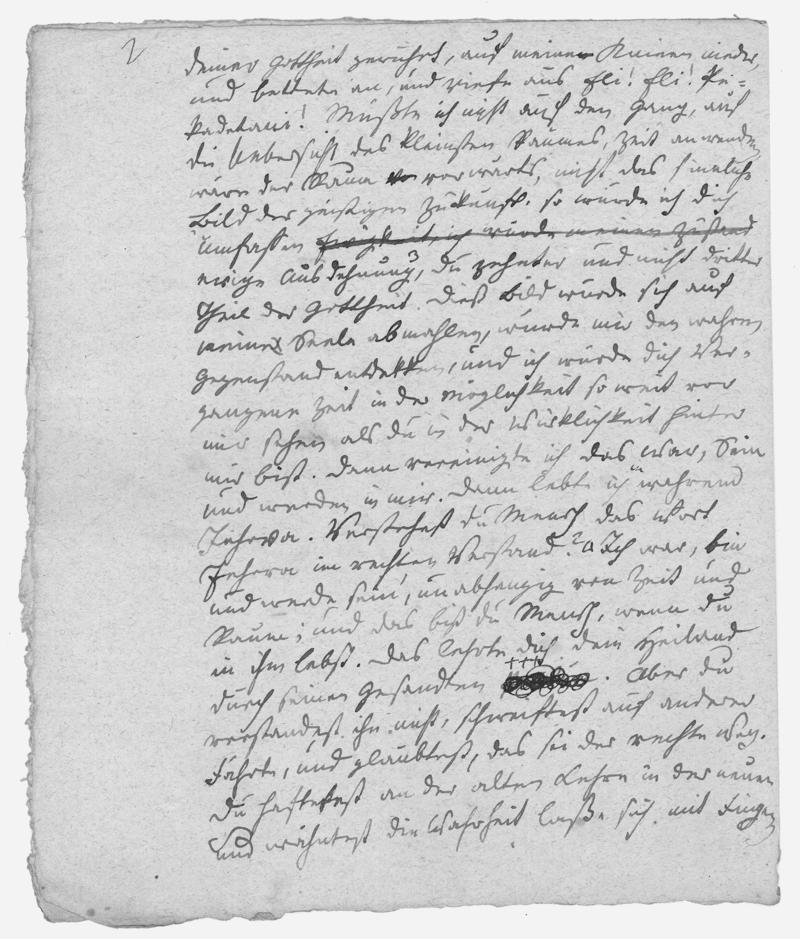 2
deiner Gottheit gerührt, auf meinen Knieen nieder,
und bettete an, und riefe aus Eli! Eli!
Müßte ich nicht auch den Gang, auf
die Uebersicht des kleinsten Raumes, Zeit anwenden
wäre der Raum vorwärts, nicht das sinnliche
Bild der geistigen Zukunft. so würde ich dich
umfassen Ewigkeit, ich würde meinen Zustand
ewige Ausdehnung, du zehnter und nicht dritter
Theil der Gottheit. Dieß Bild würde sich auf
meiner Seele abmahlen, würde mir den wahren
Gegenstand entdekken, und ich würde dich Ver-
gangene Zeit in der Möglichkeit so weit vor
mir sehen als du in der Wirklichkeit hinter
mir bist. Dann vereinigte ich das War, Sein
und werden in mir. Dann lebte ich während
Jehova. Verstehest du Mensch das Wort
Jehova im rechten Verstand? Ich war, bin
und werde sein, unabhengig von Zeit und
Raum; und das bist du Mensch, wenn du
in ihm lebst. Das lehrte dich dein Heiland
durch seinen Gesandten +++. Aber du
verstandest ihn nicht, schweiftest auf anderer
Fährte, und glaubtest, das sei der rechte Weg.
Du haftetest an der alten Lehre in der neuen
und wähntest die Wahrheit laße sich mit Fingern